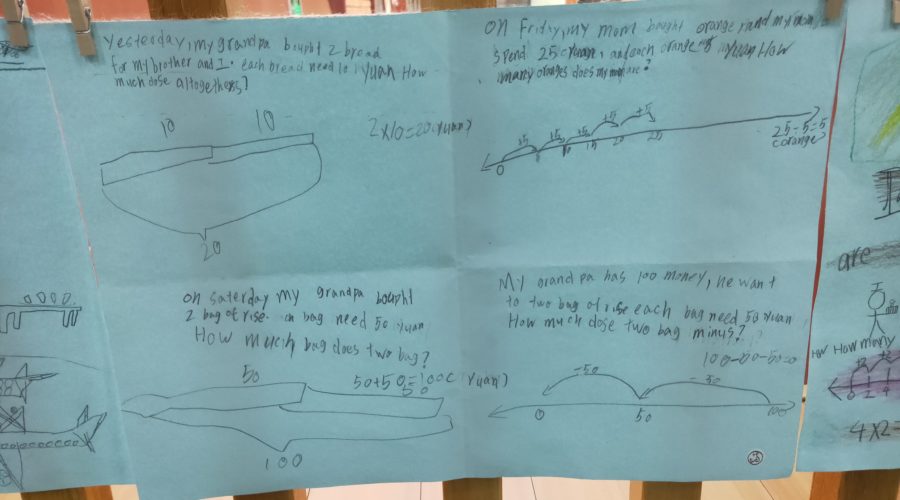 Yesterday, my grandpa bought 2 bread
for my brother and I. each bread need 10 yuan How
much dose altogethers?
10 10
2x10=20(yuan)
20
On Friday, my mom bought orange and my mom
spend 25 yuan, and each orange is yuan How
many oranges does my mom
+5 +5 +5 +5 +5
0 10 15 20 25
25-5=5
(orange)
on saterday my grandpa bought
2 bag of rise. bag need 50 yuan
How much bag does two bag?
50
50+50=100(yuan)
50
100
My grandpa has 100 money, he want
to two bag of rise each bag need 50 yuan
How much dose two bag minus?
100-50-50=0
-50 -50
0 50 100
are
How many
+2 +2
0 2 4
4x2=